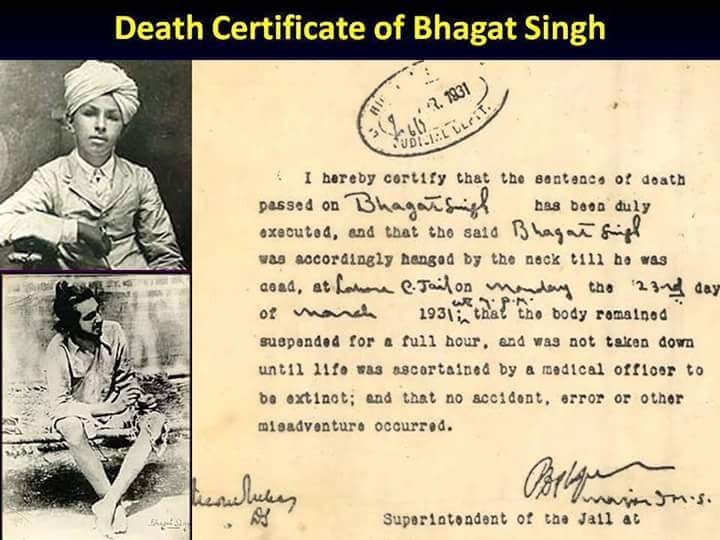 Death Certificate of Bhagat Singh
1931
I hereby certify that the sentence of death
passed on Bhagat Singh has been duly
executed, and that the said Bhagat Singh
was accordingly hanged by the neck till he was
dead, at Lahore C. Jail on Monday the 23rd day
of March 1931; at 7 P.M. that the body remained
suspended for a full hour, and was not taken down
until life was ascertained by a medical officer to
be extinct; and that no accident, error or other
misadventure occurred.
Superintendent of the Jail at